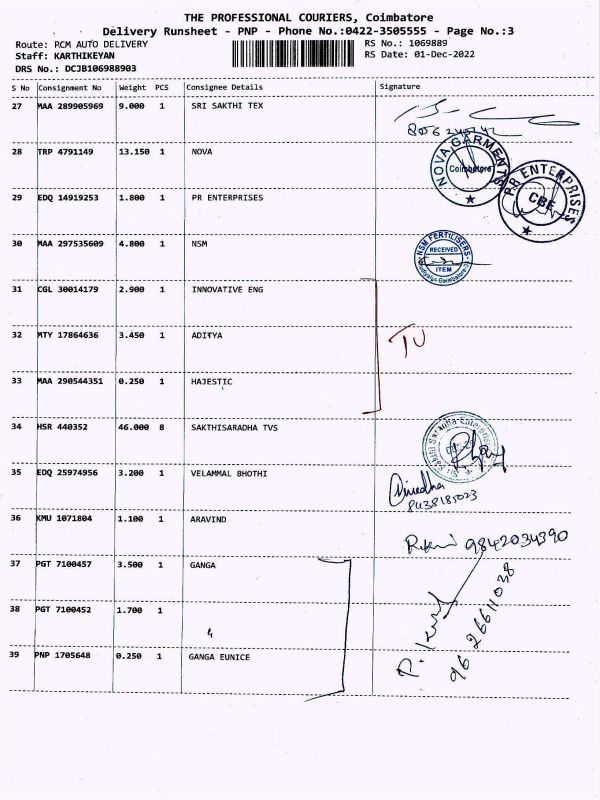 THE PROFESSIONAL COURIERS, Coimbatore
Delivery Runsheet - PNP - Phone No.:0422-3505555 - Page No.:3
Route: PCM AUTO DELIVERY RS No.: 1069889
Staff: KARTHIKEYAN RS Date: 01-Dec-2022
DRS No.: DCJB106988903
S No Consignment No Weight PCS Consignee Details Signature
27 MAA 289905969 9.000 1 SRI SAKTHI TEX
28 TRP 4791149 13.150 1 NOVA
NOVA GARMENTS
Coimbatore
29 EDQ 14919253 1.800 1 PR ENTERPRISES
ENTERPRISES
CBE
30 MAA 297535609 4.800 1 NSM
NSM FERTILISERS
RECEIVED
ITEM
31 CGL 30014179 2.900 1 INNOVATIVE ENG
32 MTY 17864636 3.450 1 ADITYA
33 MAA 290544351 0.250 1 HAJESTIC
34 HSR 440352 46.000 8 SAKTHISARADHA TVS
35 EDQ 25974956 3.200 1 VELAMMAL BHOTHI
8438185023
36 KMU 1071804 1.100 1 ARAVIND
9842034390
37 PGT 7100457 3.500 1 GANGA
38 PGT 7100452 1.700 1
39 PNP 1705648 0.250 1 GANGA EUNICE